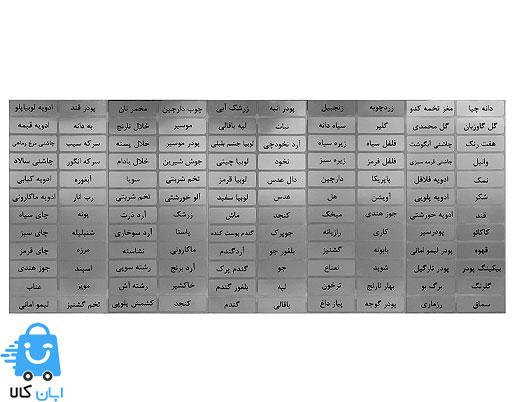 دانه چیا مغز تخمه کدو زردچوبه زنجبیل پودر انبه زرشک آبی چوب دارچین مخمر نان پودر قند ادویه لوبیاپلو
گل گاوزبان گل محمدی گلپر سیاه دانه نبات لپه باقالی موسیر خلال نارنج به دانه ادویه قیمه
هفت رنگ چاشنی آبگوشت فلفل سیاه زیره سیاه آرد نخودچی لوبیا چشم بلبلی پودر موسیر خلال پسته سرکه سیب چاشنی مرغ وماهی
وانیل چاشنی قرمه سبزی فلفل قرمز زیره سبز نخود لوبیا چیتی جوش شیرین خلال بادام سرکه انگور چاشنی سالاد
نمک ادویه فلافل پاپریکا دارچین دال عدس لوبیا قرمز تخم شربتی سویا آبغوره ادویه کبابی
شکر ادویه پلویی آویشن هل عدس لوبیا سفید آلو خورشتی تخم شربتی رب انار ادویه ماکارونی
قند ادویه خورشتی جوز هندی میخک کنجد ماش زرشک آرد ذرت پونه چای سیاه
کاکائو پودرسیر کاری رازیانه جوپرک گندم پوست کنده پاستا آرد سوخاری شنبلیله چای سبز
قهوه پودر لیمو امانی بابونه گشنیز بلغور جو آردگندم ماکارونی نشاسته مرزه چای قرمز
بیکینگ پودر پودر نارگیل شوید نعناع جو گندم پرک آرد برنج رشته سوپی اسپند جوز هندی
گلرنگ برگ بو بهار نارنج ترخون لپه بلغور گندم خاکشیر رشته آش مویز عناب
سماق رزماری پودر گوجه پیاز داغ باقالی گندم کنجد کشمش پلویی تخم گشنیز لیمو امانی
ابان کالا